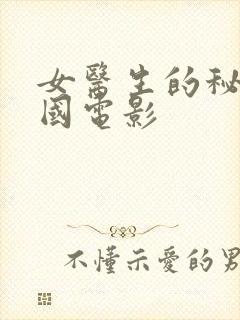 女醫生的秘
國電影
不懂示愛的男